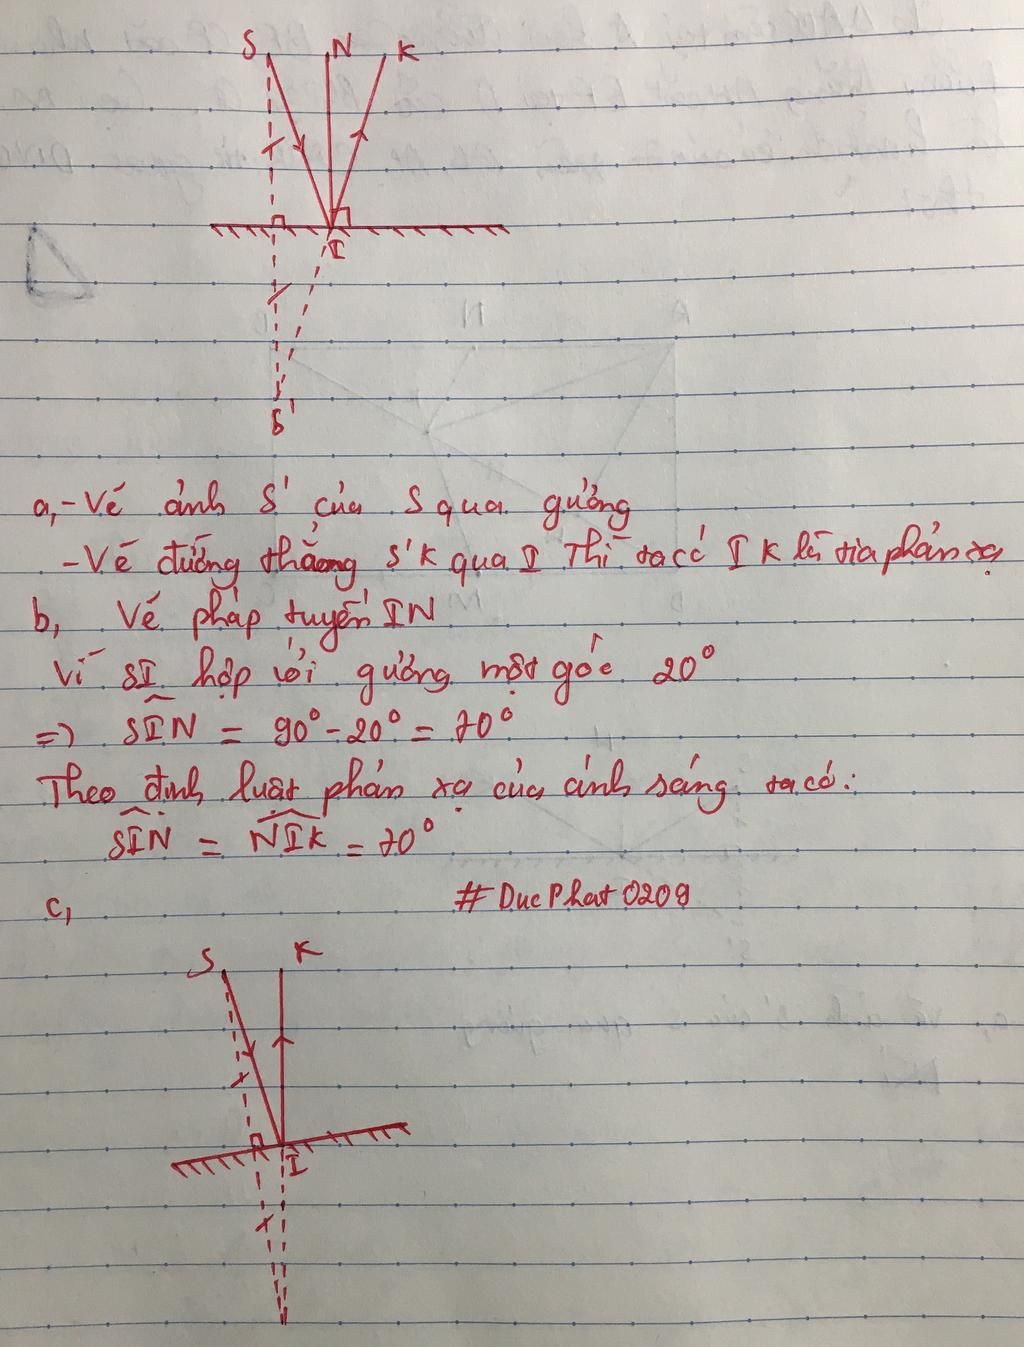 S N K
I
S'
a, - Vẽ ảnh S' của S qua gương
- Vẽ đường thẳng S'K qua I Thì ta có IK là tia phản xạ
b, Vẽ pháp tuyến IN
Vì SI hợp với gương một góc 20°
=> SIN = 90° - 20° = 70°
Theo định luật phản xạ của ánh sáng ta có:
SIN = NIK = 70°
c, # DucPhat0209
S K
I